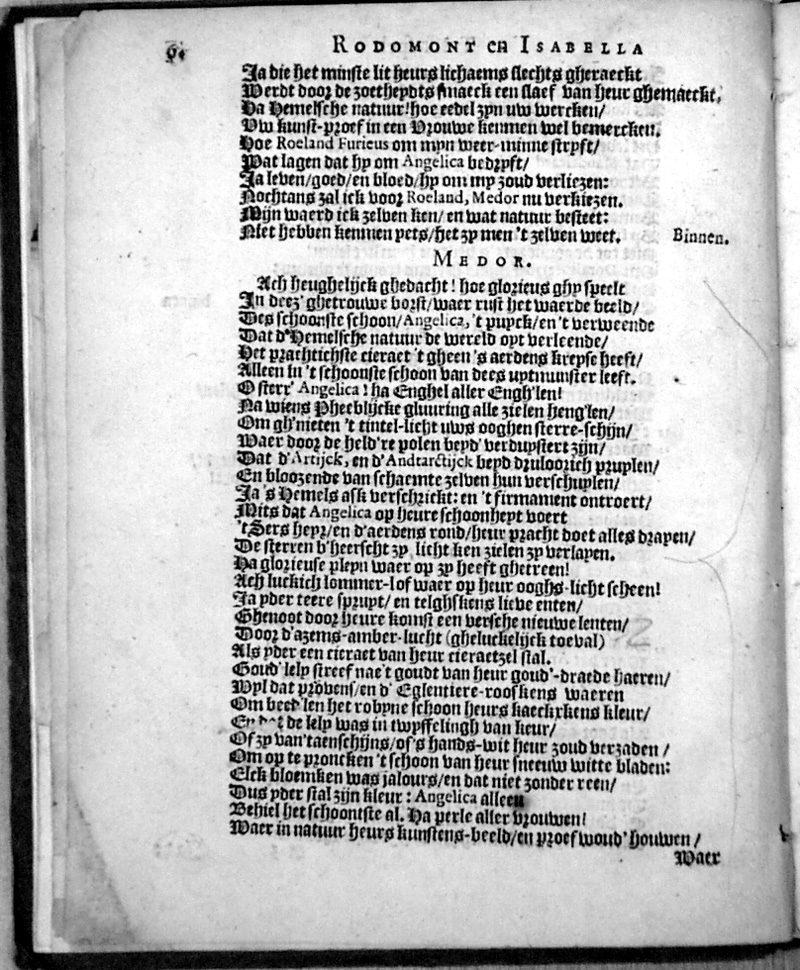 RODOMONT en ISABELLA
Ja die het minste lit heurs lichaems slechts gheraeckt
Werdt door de zoetheydts smaeck een slaef van heur ghemaeckt,
Ha Hemelsche natuur! hoe eedel zyn uw wercken/
Uw kunst-proef in een Vrouwe kennen wel bemercken.
Hoe Roeland Furieus om myn weer-minne stryft/
Wat lagen dat hy om Angelica bedryft/
Ja leven/goed/en bloed/hy om my zoud verliezen:
Nochtans zal ick voor Roeland, Medor nu verkiezen.
Mijn waerd ick zelven ken/ en wat natuur besteet:
Niet hebben kennen yets/het zy men 't zelven weet. Binnen.
MEDOR.
Ach heughelijck ghedacht! hoe glorieus ghy speelt
In deez' ghetrouwe borst/waer rust het waerde beeld/
Des schoonste schoon/Angelica, 't puyck/en 't verweende
Dat d'Hemelsche natuur de wereld oyt verleende/
Het prachtichste cieraet 't gheen 's aerdens kreyse heeft/
Alleen in 't schoonste schoon van dees uytmunster leeft.
O sterr' Angelica! ha Enghel aller Engh'len!
Na wiens Pheeblijcke gluuring alle zielen heng'len/
Om gh'nieten 't tintel-licht uws ooghen sterre-schijn/
Waer door de held're polen beyd' verduystert zijn/
Dat d'Artijck, en d'Andtarctijck beyd druloorich pruylen/
En bloozende van schaemte zelven hun verschuylen/
Ja 's Hemels ask verschrickt: en 't firmament ontroert/
Mits dat Angelica op heure schoonheyt voert
't Sers heyr/en d'aerdens rond/heur pracht doet alles drayen/
De sterren b'heerscht zy licht ken zielen zy verlayen.
Ha glorieuse pleyn waer op zy heeft ghetreen!
Ach luckich lommer-lof waer op heur ooghs-licht scheen!
Ja yder teere spruyt/ en telghskens lieve enten/
Ghenoot door heure komst een versche nieuwe lenten/
Door d'azems-amber-lucht (gheluckelijck toeval)
Als yder een cieraet van heur cieraetzel stal.
Goud' lely streef nae't goudt van heur goud'-draede haeren/
Wyl dat provens/en d' Eglentiere-rooskens waeren
Om beed'len het robyne schoon heurs kaeckxkens kleur/
En dat de lely was in twyffelingh van keur/
Of zy van'taenschijns/of's hands-wit heur zoud verzaden /
Om op te proncken 't schoon van heur sneeuw witte bladen:
Elck bloemken was jalours/en dat niet zonder reen/
Dus yder stal zijn kleur: Angelica alleen
Behiel het schoontste al. Ha perle aller vrouwen!
Waer in natuur heurs kunstens-beeld/en proef woud' houwen /
Waer